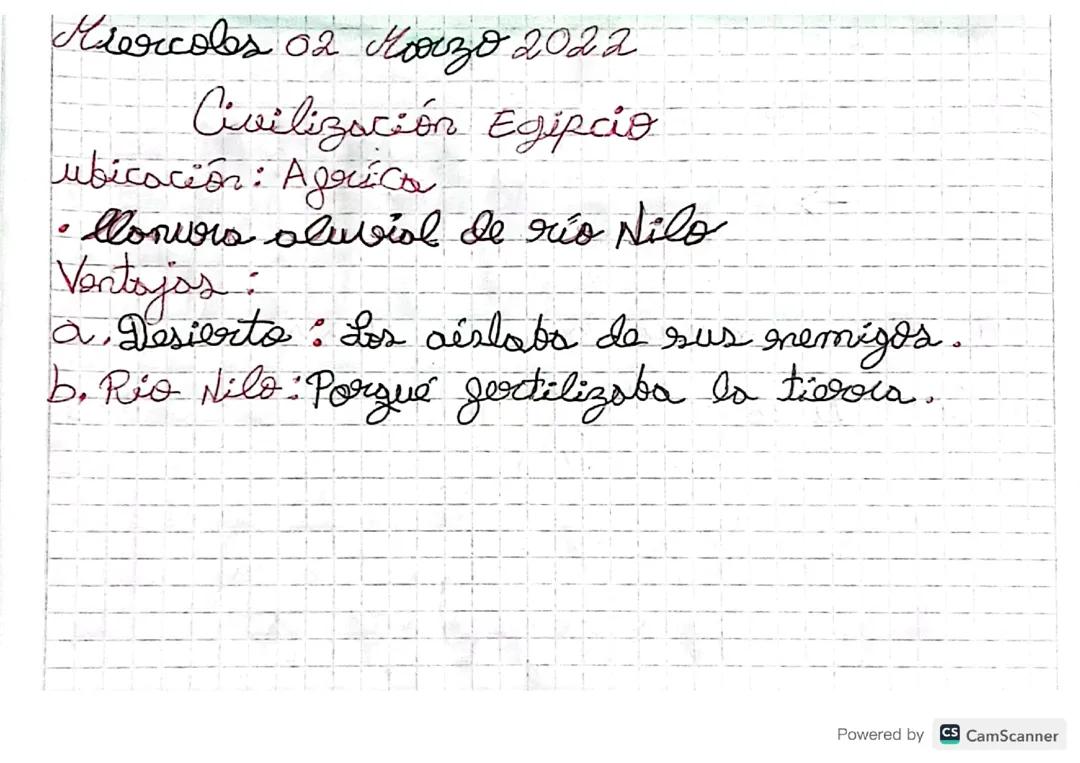 Miercoles 02 Marzo 2022
Civilización Egipcia
ubicación: Africa
• llanura aluvial de río Nilo
Ventajas:
a. Desierto: Los aislaba de sus enemigos.
b. Rio Nilo: Porqué fertilizaba la tierra.
Powered by CS CamScanner